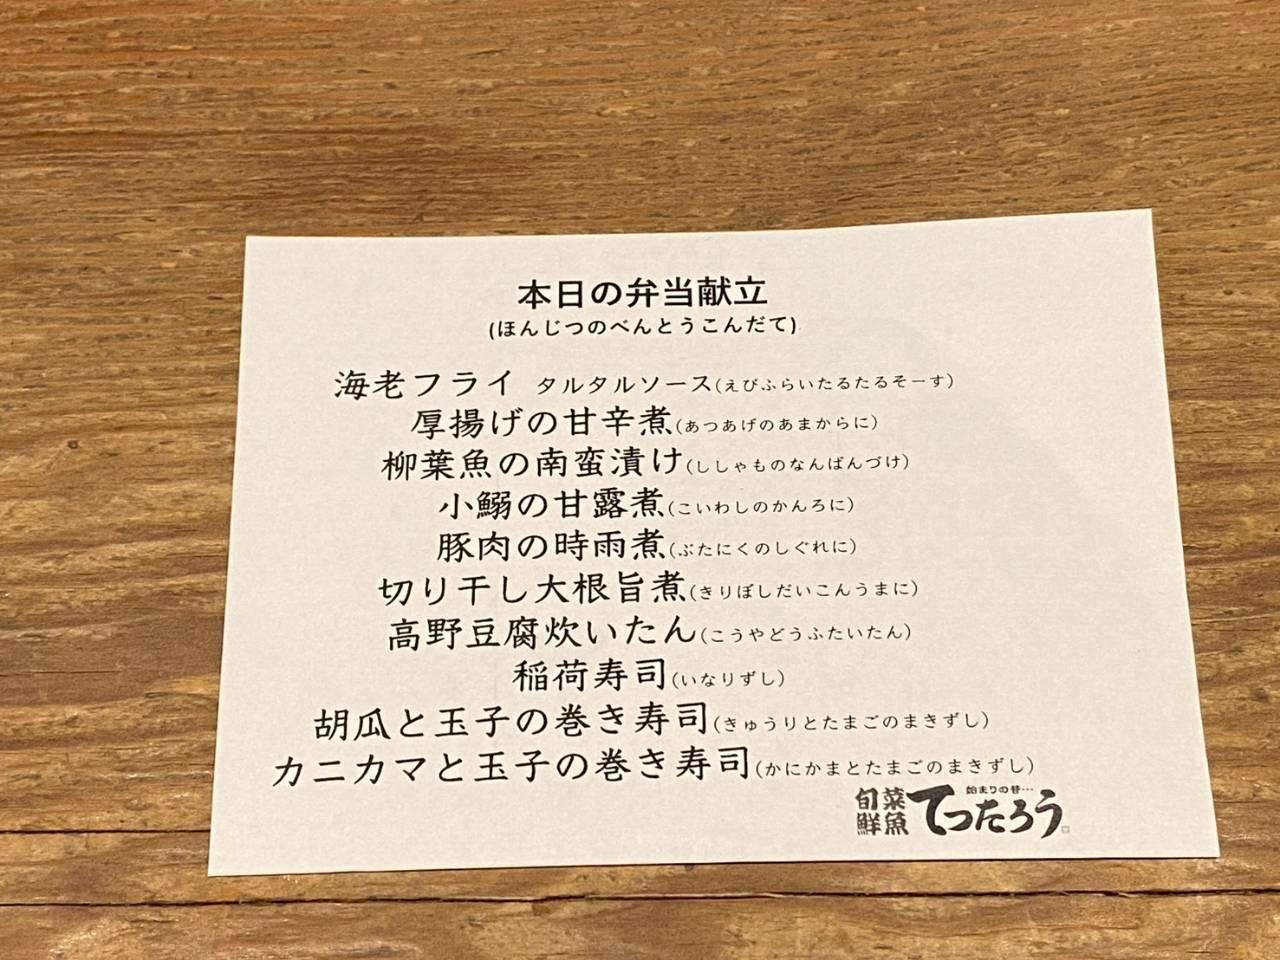 本日の弁当献立
(ほんじつのべんとうこんだて)
海老フライ タルタルソース(えびふらいたるたるそーす)
厚揚げの甘辛煮(あつあげのあまからに)
柳葉魚の南蛮漬け(ししゃものなんばんづけ)
小鰯の甘露煮(こいわしのかんろに)
豚肉の時雨煮(ぶたにくのしぐれに)
切り干し大根旨煮(きりぼしだいこんうまに)
高野豆腐炊いたん(こうやどうふたいたん)
稲荷寿司(いなりずし)
胡瓜と玉子の巻き寿司(きゅうりとたまごのまきずし)
カニカマと玉子の巻き寿司(かにかまとたまごのまきずし)
旬菜
鮮魚
始まりの替…
てつたろう。